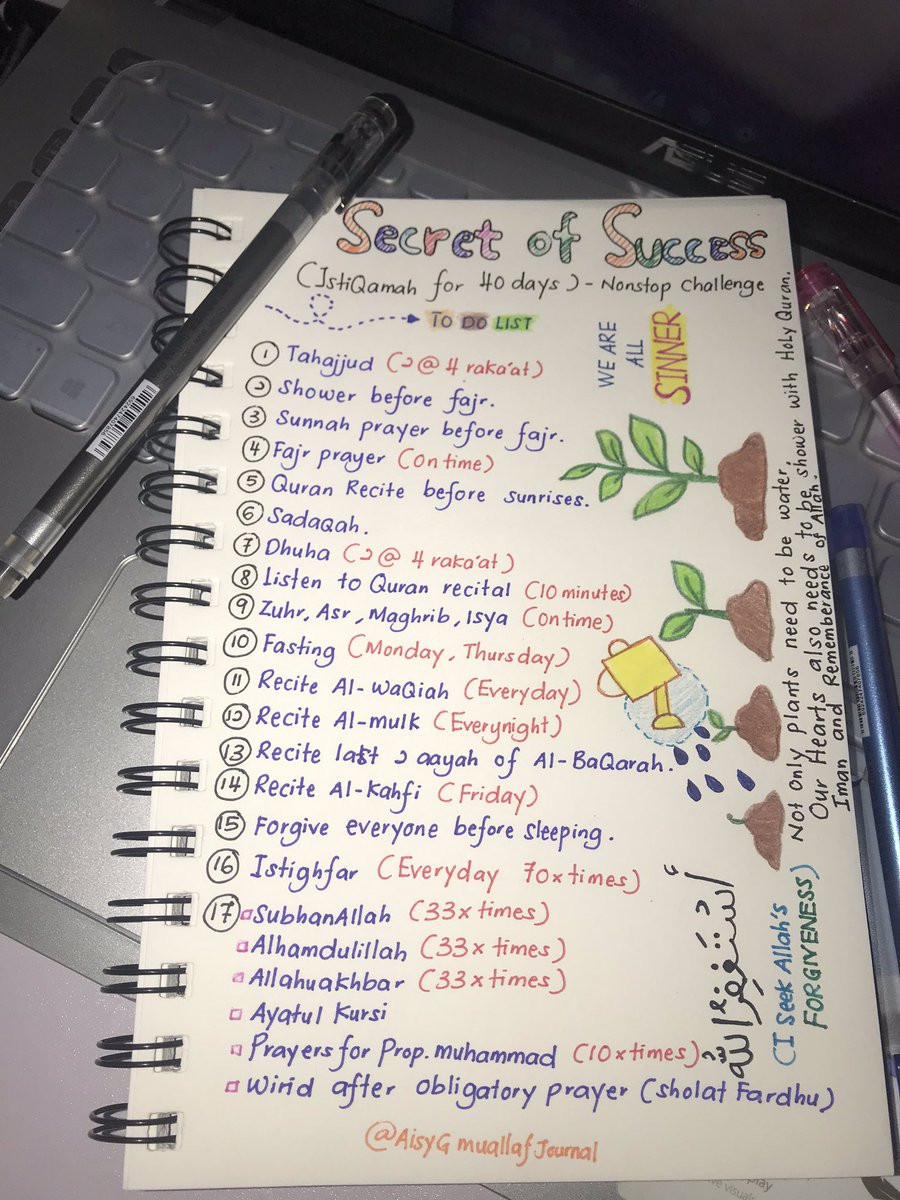 Secret of Success
(IstiQamah for 40 days) - Nonstop Challenge
TO DO LIST
WE ARE
ALL
SINNER
① Tahajjud (2@4 raka'at)
② Shower before fajr.
③ Sunnah prayer before fajr.
④ Fajr prayer (On time)
⑤ Quran Recite before sunrises.
⑥ SadaQah.
⑦ Dhuha (2@ 4 raka'at)
⑧ Listen to Quran recital (10 minutes)
⑨ Zuhr, Asr, Maghrib, Isya (On time)
⑩ Fasting (Monday, Thursday)
⑪ Recite Al-waQiah (Everyday)
⑫ Recite Al-mulk (Everynight)
⑬ Recite last 2 aayah of Al-BaQarah.
⑭ Recite Al-Kahfi (Friday)
⑮ Forgive everyone before sleeping.
⑯ Istighfar (Everyday 70x times)
⑰ SubhanAllah (33x times)
Alhamdulillah (33x times)
Allahuakhbar (33x times)
Ayatul Kursi
Prayers for Prop. muhammad (10x times)
Wirid after obligatory prayer (sholat Fardhu)
@AisyG muallaf Journal
Not only plants need to be water,
Our Hearts also needs to be shower with Holy Quran.
Iman and Rememberance of Allah.
أَسْتَغْفِرُ اللَّهَ
(I Seek Allah's
FORGIVENESS)